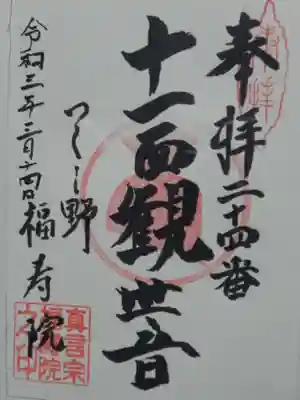 奉拝二十四番
十一面観世音
つくし野
福寿院
令和三年三月十四日
真言宗
福寿院
之印